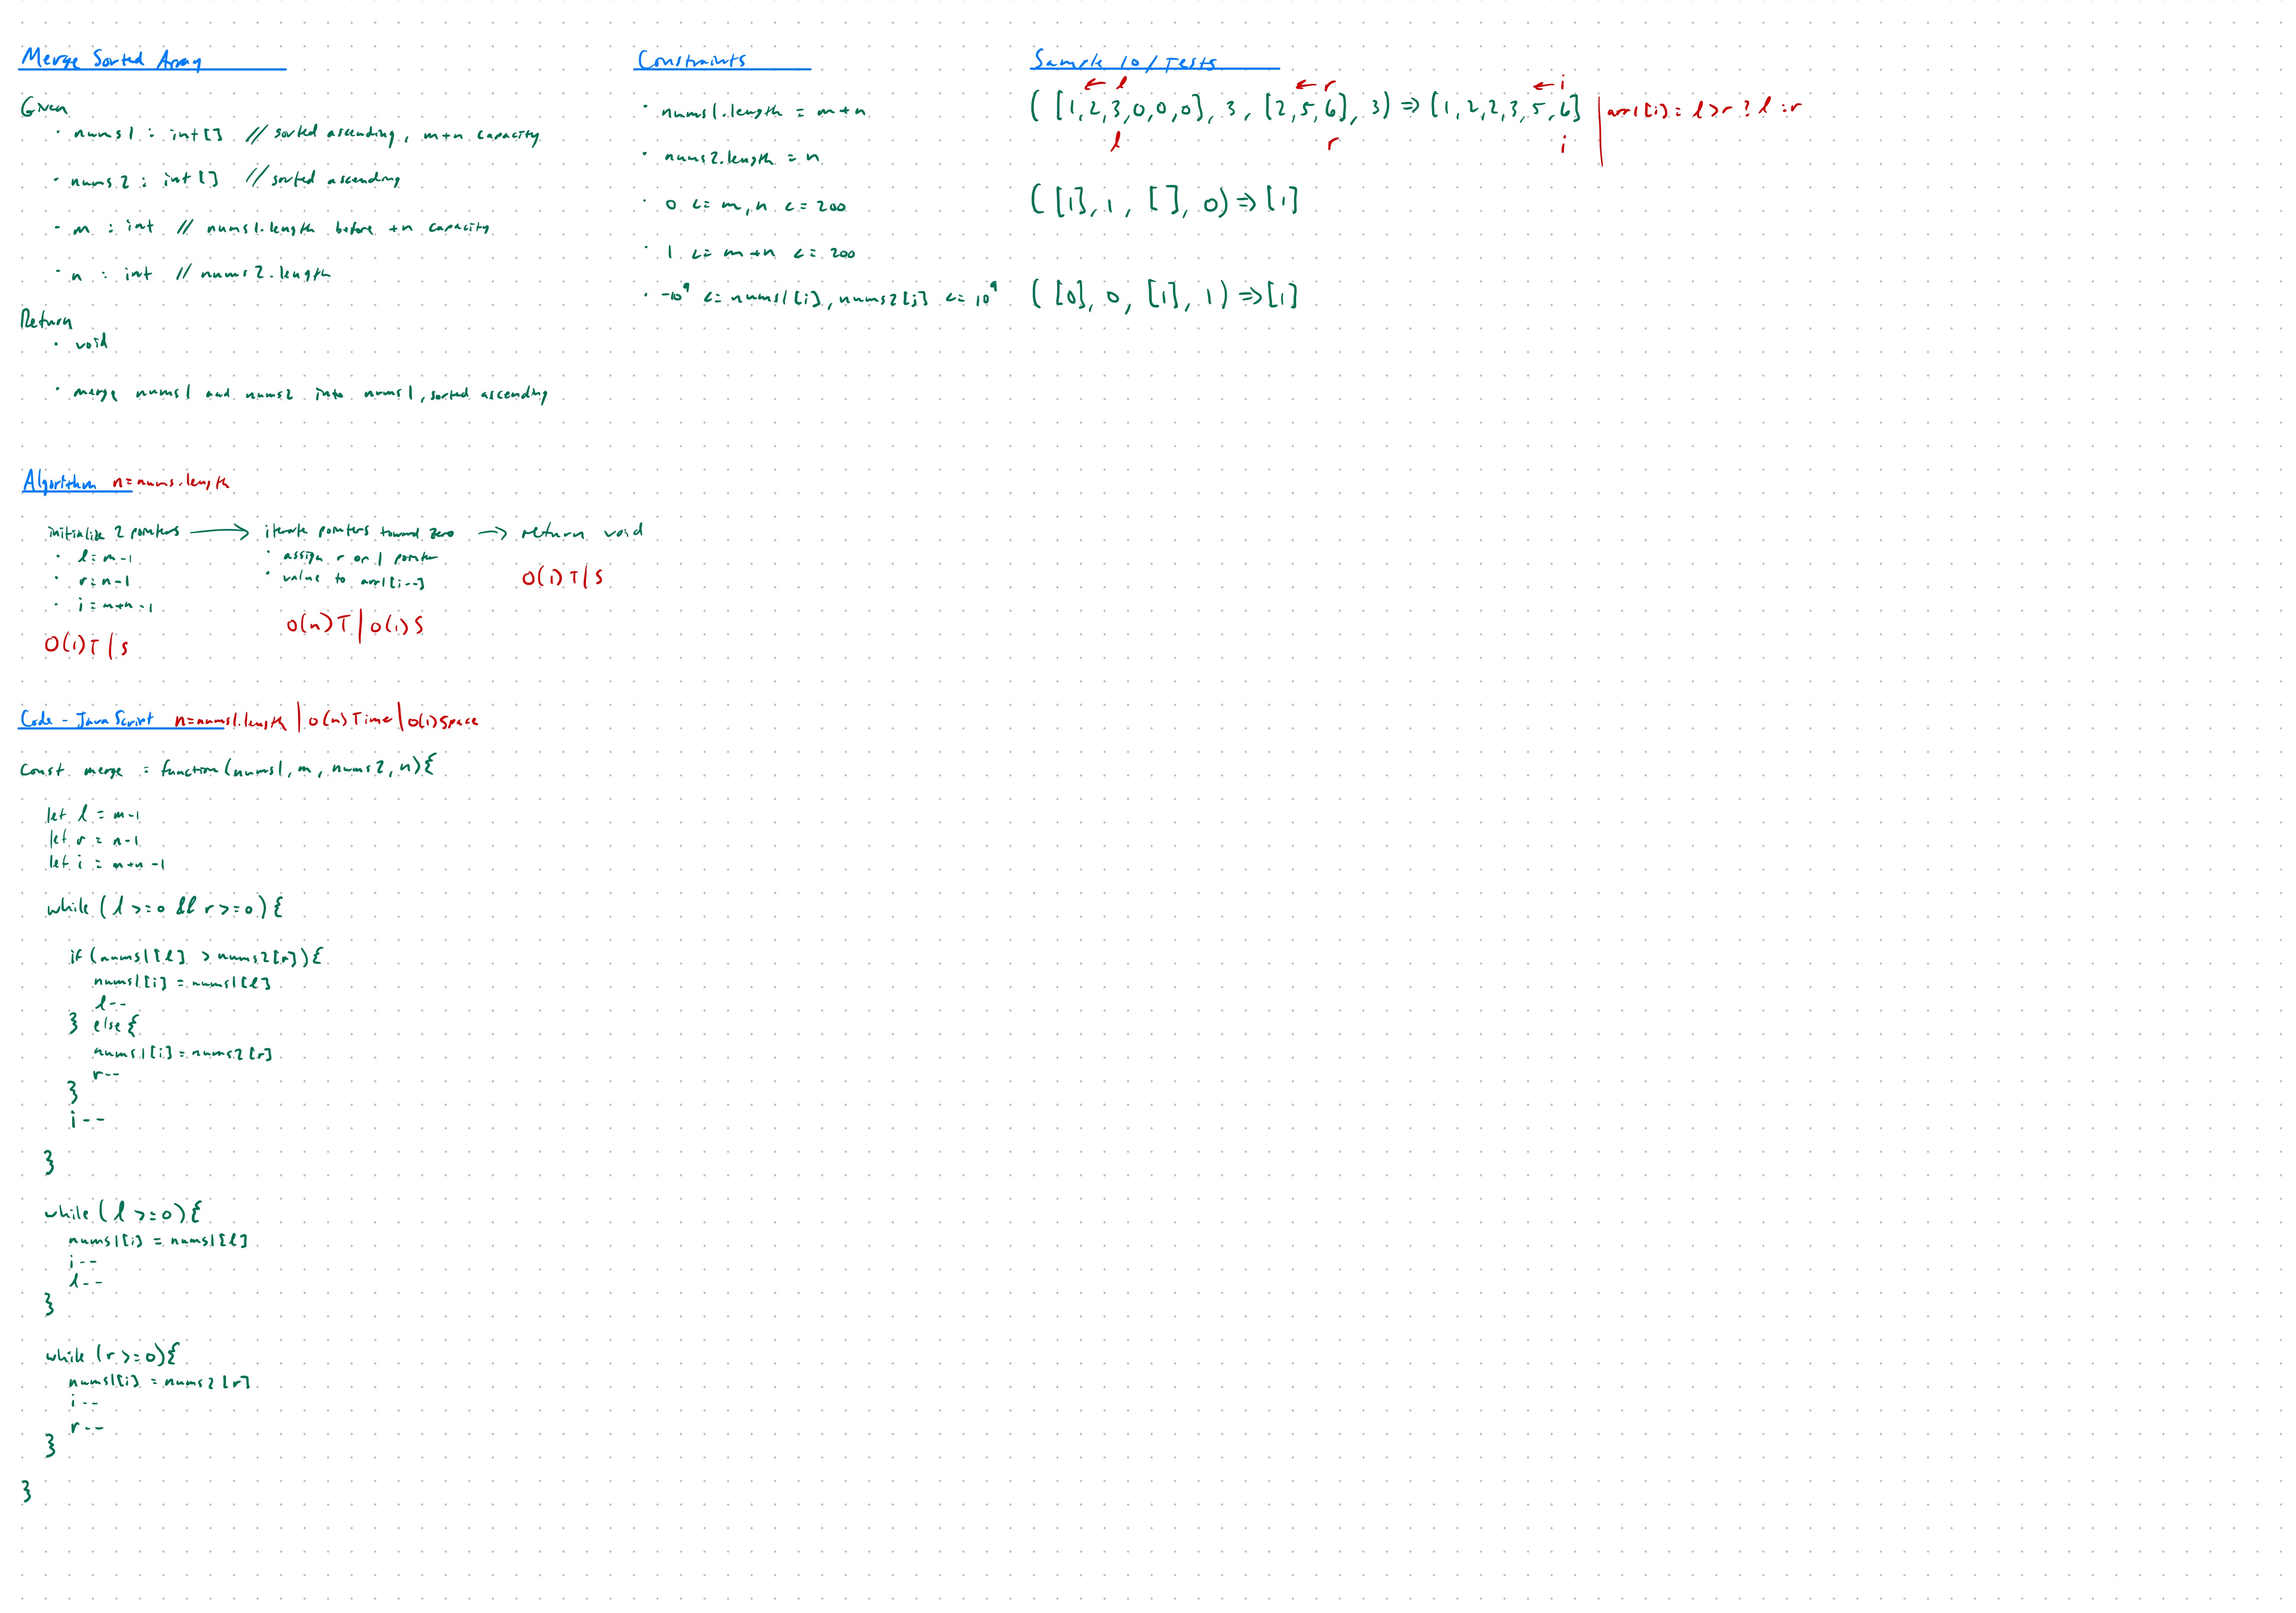 Merge Sorted Array
Given
· nums1 : int[] // sorted ascending, m+n capacity
· nums2 : int[] // sorted ascending
- m : int // nums1.length before +n capacity
· n : int // nums2.length
Return
· void
· merge nums1 and nums2 into nums1, sorted ascending
Constraints
· nums1.length = m+n
· nums2.length = n
· 0 <= m, n <= 200
· 1 <= m+n <= 200
· -10^9 <= nums1[i], nums2[j] <= 10^9
Sample IO / Tests
← l ← r ← i
( [1,2,3,0,0,0], 3, [2,5,6], 3) => [1,2,2,3,5,6] | arr1[i] = l > r ? l : r
l r i
( [1], 1, [ ], 0) => [1]
( [0], 0, [1], 1) => [1]
Algorithm n=nums.length
initialize 2 pointers → iterate pointers toward zero → return void
· l = m-1
· r = n-1
· i = m+n-1
O(1) T | S
· assign r or l pointer
· value to arr1[i--]
O(n) T | O(1) S
O(1) T | S
Code - JavaScript n=nums1.length | O(n) Time | O(1) Space
const merge = function(nums1, m, nums2, n){
let l = m-1
let r = n-1
let i = m+n-1
while (l >= 0 && r >= 0){
if (nums1[l] > nums2[r]){
nums1[i] = nums1[l]
l--
} else {
nums1[i] = nums2[r]
r--
}
i--
}
while (l >= 0){
nums1[i] = nums1[l]
i--
l--
}
while (r >= 0){
nums1[i] = nums2[r]
i--
r--
}
}